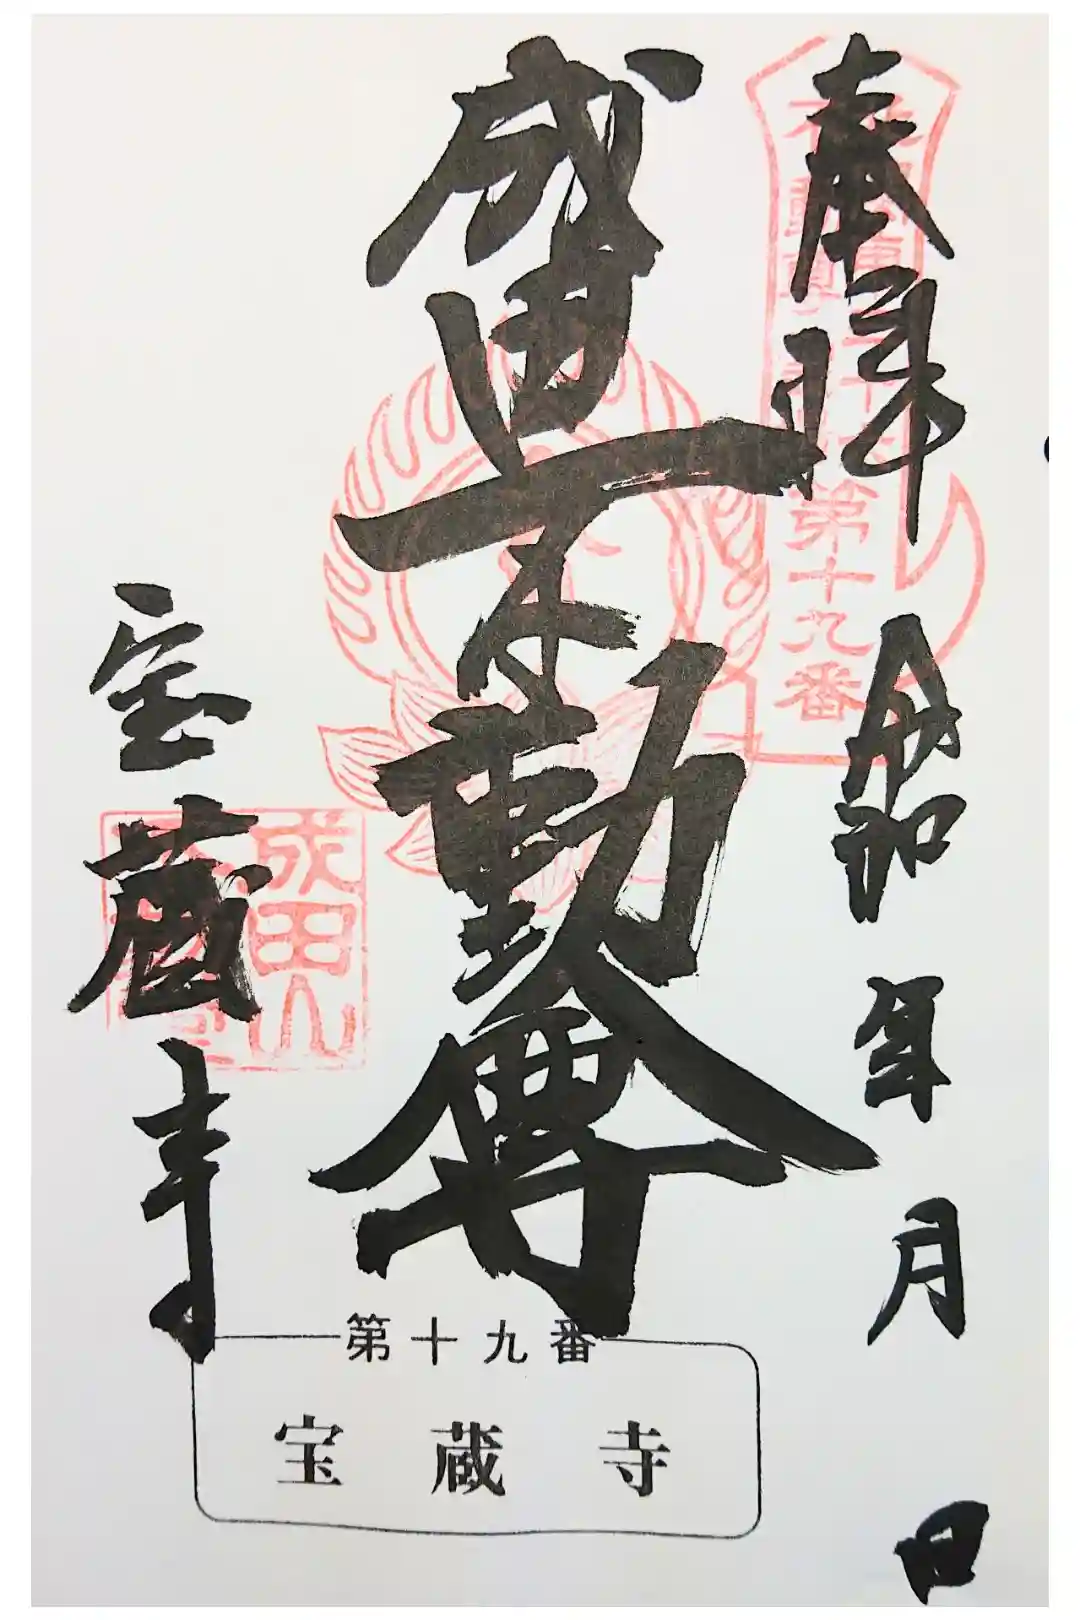 奉拝
第十九番
令和 年 月 日
成田不動尊
宝蔵寺
成田山
第十九番
宝蔵寺